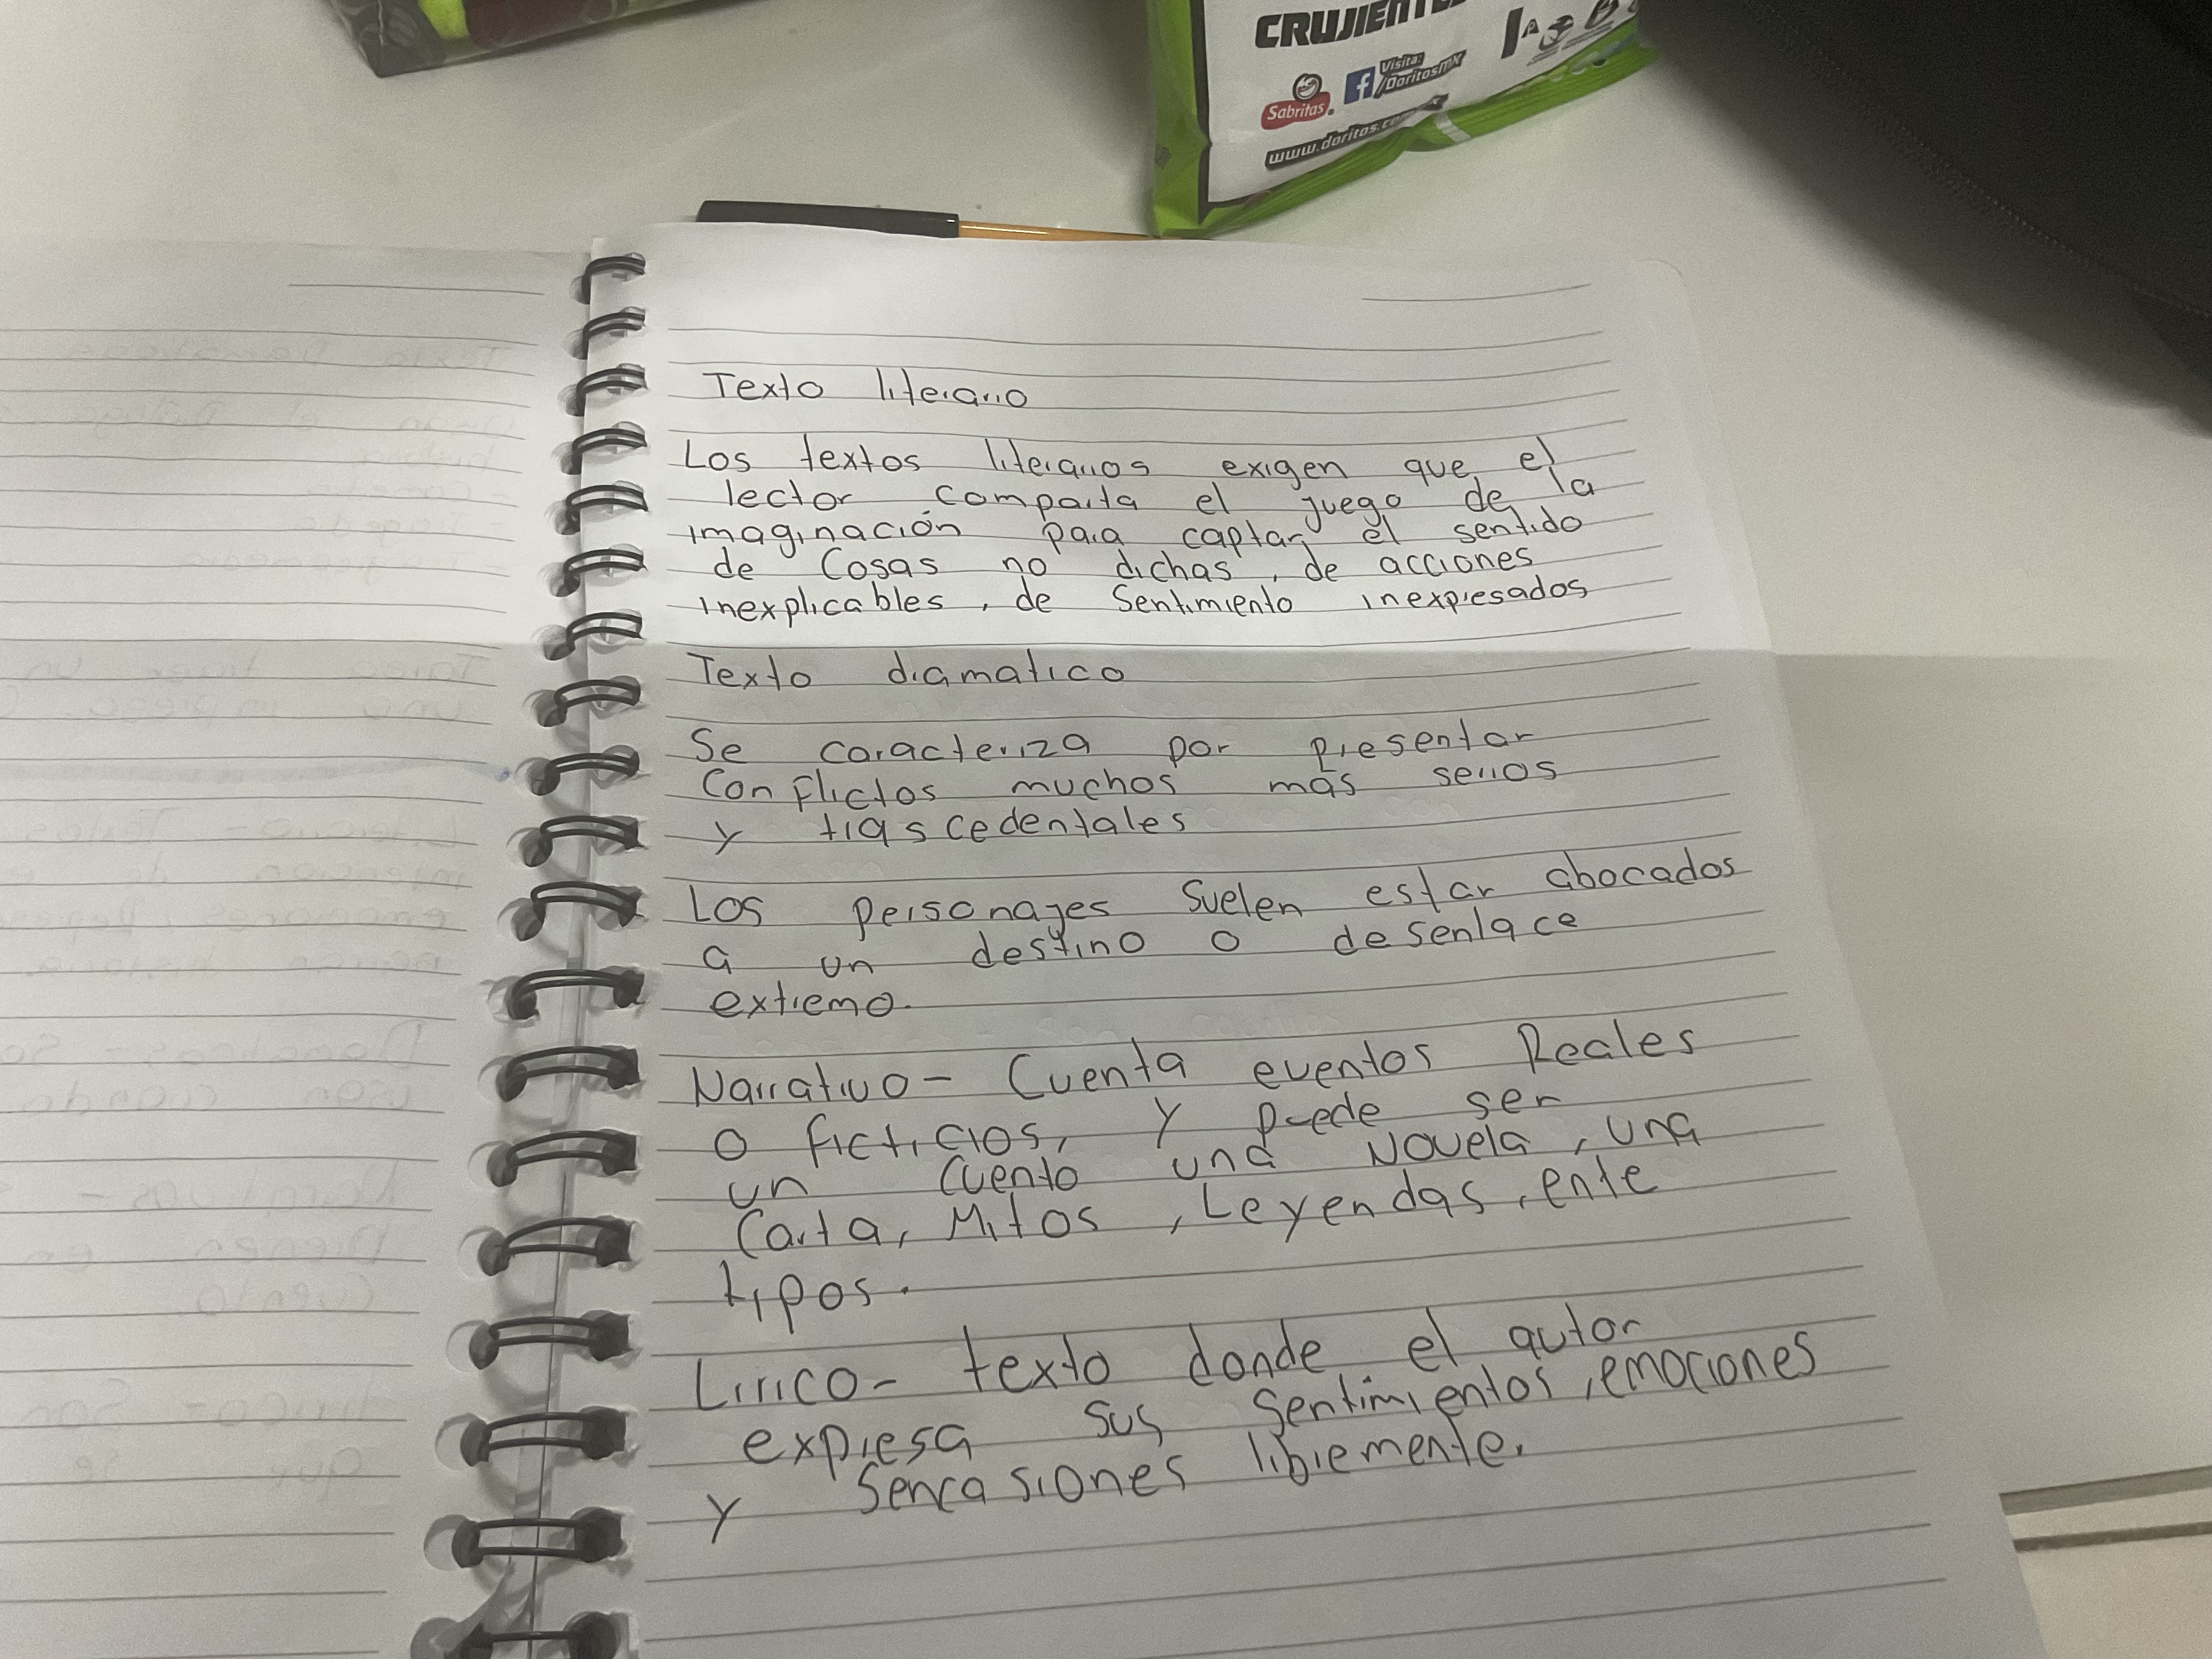 CRUJIENTE
Visita:
/DoritosMX
Sabritas
www.doritos.co
Texto literario
Los textos literarios exigen que el
lector comparta el juego de la
imaginación para captar el sentido
de Cosas no dichas, de acciones
inexplicables, de Sentimiento inexpresados
Texto dramatico
Se caracteriza por presentar
Conflictos muchos más serios
y trascedentales
Los personajes Suelen estar abocados
a un destino o desenlace
extremo.
Narrativo- Cuenta eventos Reales
o ficticios, y puede ser
un cuento una Novela, una
Carta, Mitos, Leyendas, ente
tipos.
Lirico- texto donde el autor
expresa sus sentimientos, emociones
y Sencasiones libremente.